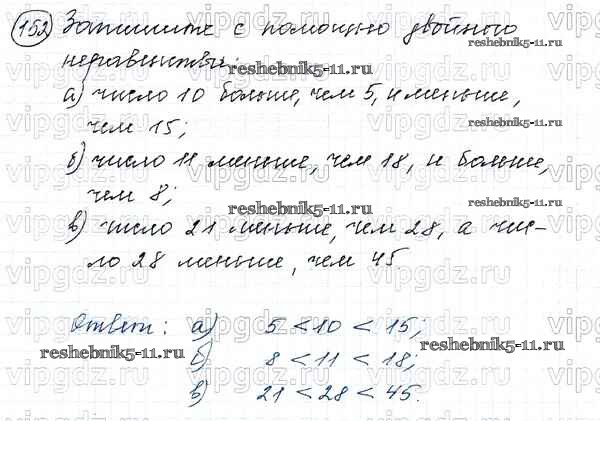 152 Запишите с помощью двойного
неравенства:
а) число 10 больше, чем 5, и меньше,
чем 15;
б) число 11 меньше, чем 18, и больше,
чем 8;
в) число 21 меньше, чем 28, а чис-
ло 28 меньше, чем 45
Ответ: а) 5 < 10 < 15;
б) 8 < 11 < 18;
в) 21 < 28 < 45.
reshebnik5-11.ru
reshebnik5-11.ru
reshebnik5-11.ru
reshebnik5-11.ru
reshebnik5-11.ru
reshebnik5-11.ru
reshebnik5-11.ru
reshebnik5-11.ru